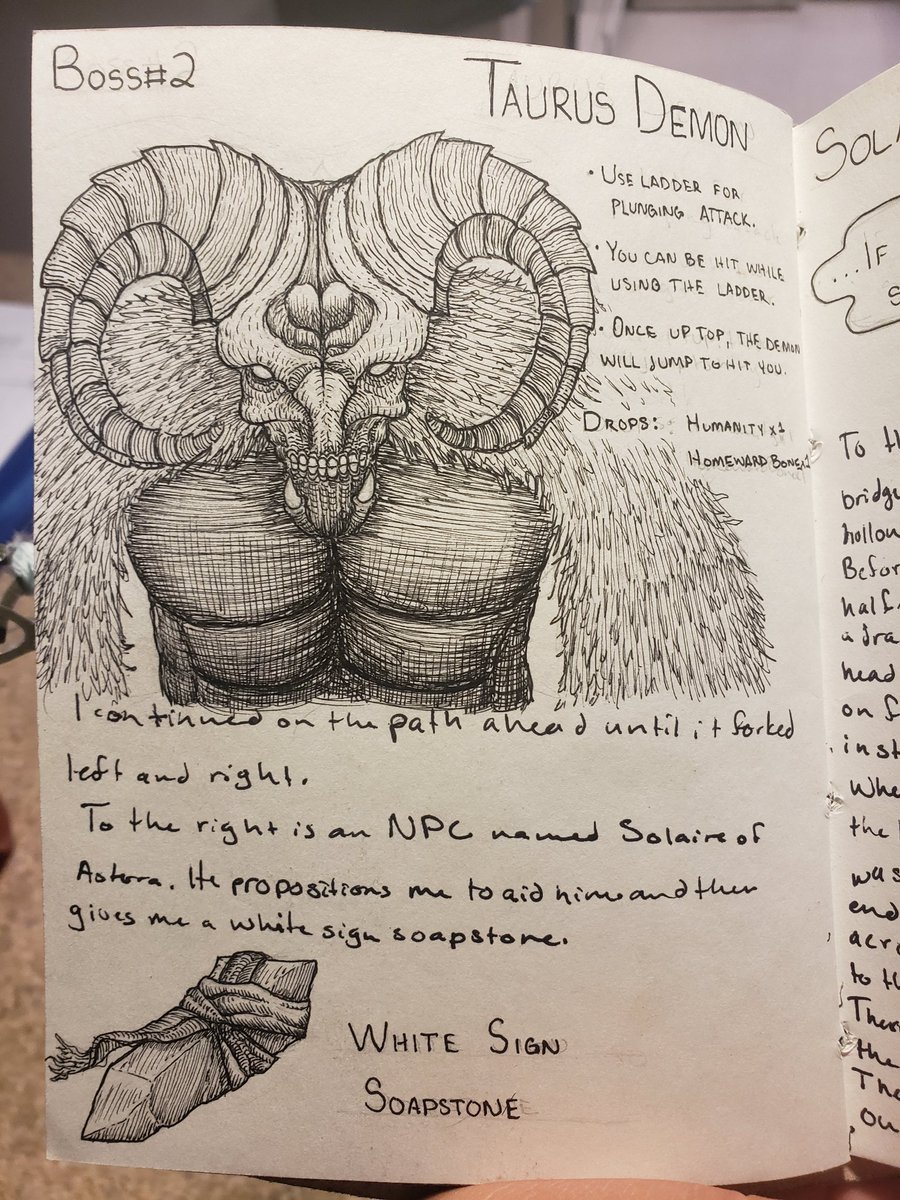 Boss#2
TAURUS DEMON
• USE LADDER FOR
PLUNGING ATTACK.
• YOU CAN BE HIT WHILE
USING THE LADDER.
• ONCE UP TOP, THE DEMON
WILL JUMP TO HIT YOU.
DROPS: HUMANITY x1
HOMEWARD BONE x1
I continued on the path ahead until it forked
left and right.
To the right is an NPC named Solaire of
Astora. He propositions me to aid him and then
gives me a white sign soapstone.
WHITE SIGN
SOAPSTONE
...IF
To th
bridge
hollow
Befor
half
a dra
head
on f
inst
Whe
the
was
end
acro
to th
Ther
the
The
ou